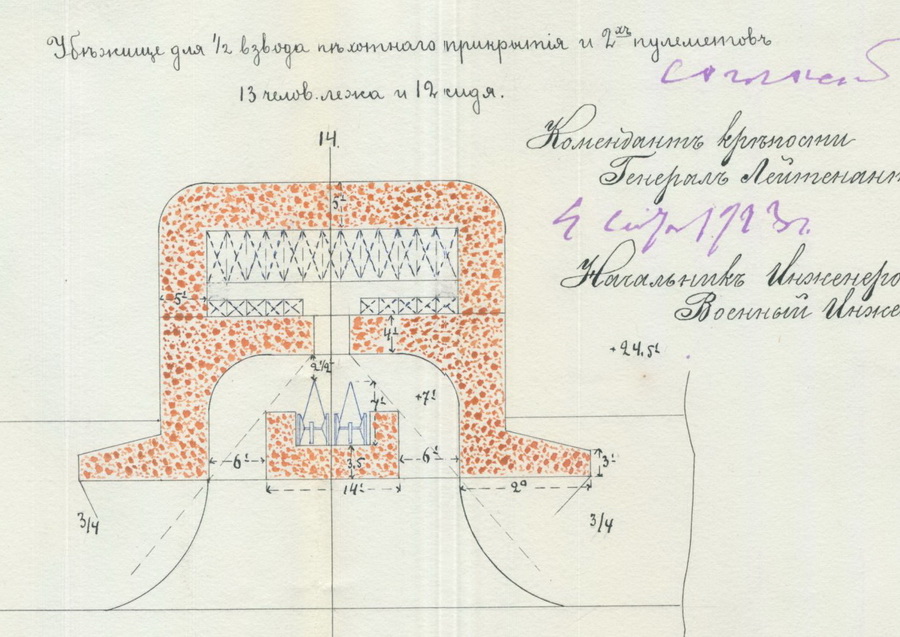 Убѣжище для 1/2 взвода пѣхотнаго прикрытія и 2хъ пулеметовъ
13 челов. лежа и 12 сидя.
14.
Комендантъ крѣпости
Генералъ Лейтенант
Начальникъ Инженеро
Военный Инже
+24.5'
5'
5'
4'
2 1/2'
4'
+7'
6'
3.5
6'
14'
3'
3/4
3/4